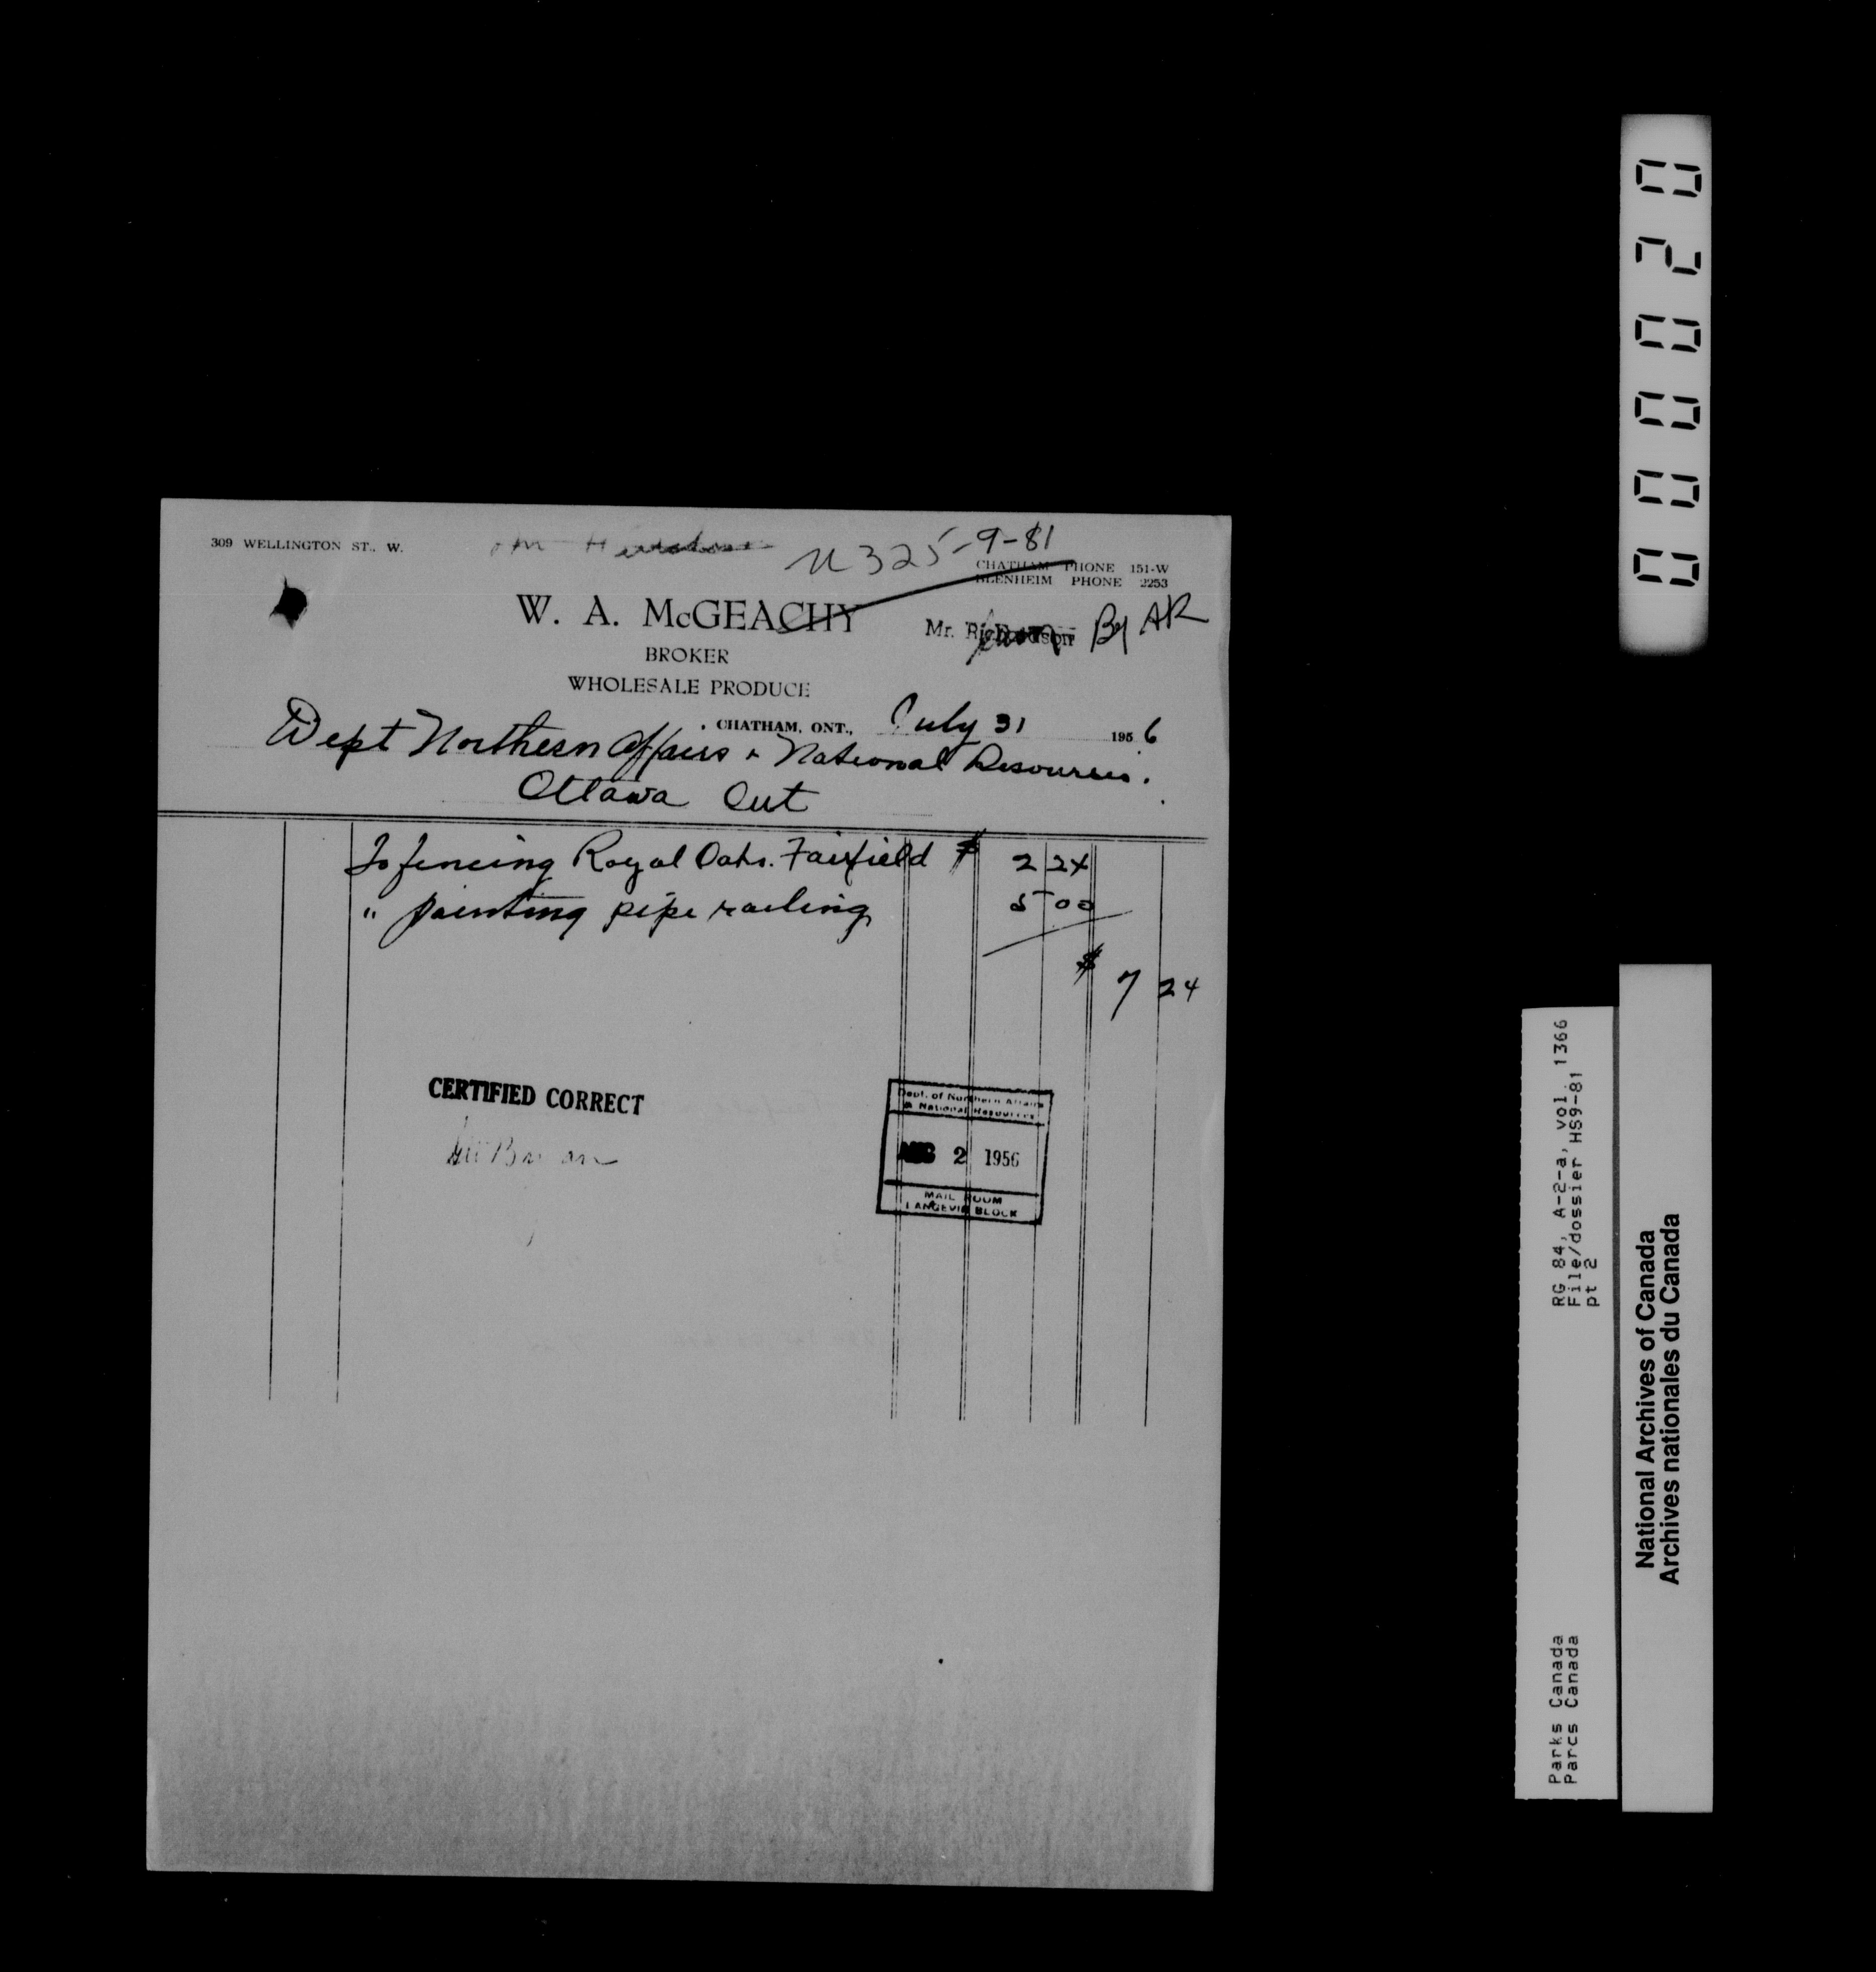 309 WELLINGTON ST., W.
U325-9-81
CHATHAM PHONE 151-W
BLENHEIM PHONE 2253
W. A. McGEACHY
Mr. Richardson By AR
BROKER
WHOLESALE PRODUCE
CHATHAM, ONT., July 31 1956
Dept Northern Affairs & National Resources.
Ottawa Ont
To fencing Royal Oaks. Fairfield $ 2 24
" painting pipe railing 5 00
$ 7 24
CERTIFIED CORRECT
Dept. of Northern Affairs
& National Resources
AUG 2 1956
MAIL ROOM
LANGEVIN BLOCK
000020
RG 84, A-2-a, vol. 1366
File/dossier HS9-81
pt 2
Parks Canada
Parcs Canada
National Archives of Canada
Archives nationales du Canada